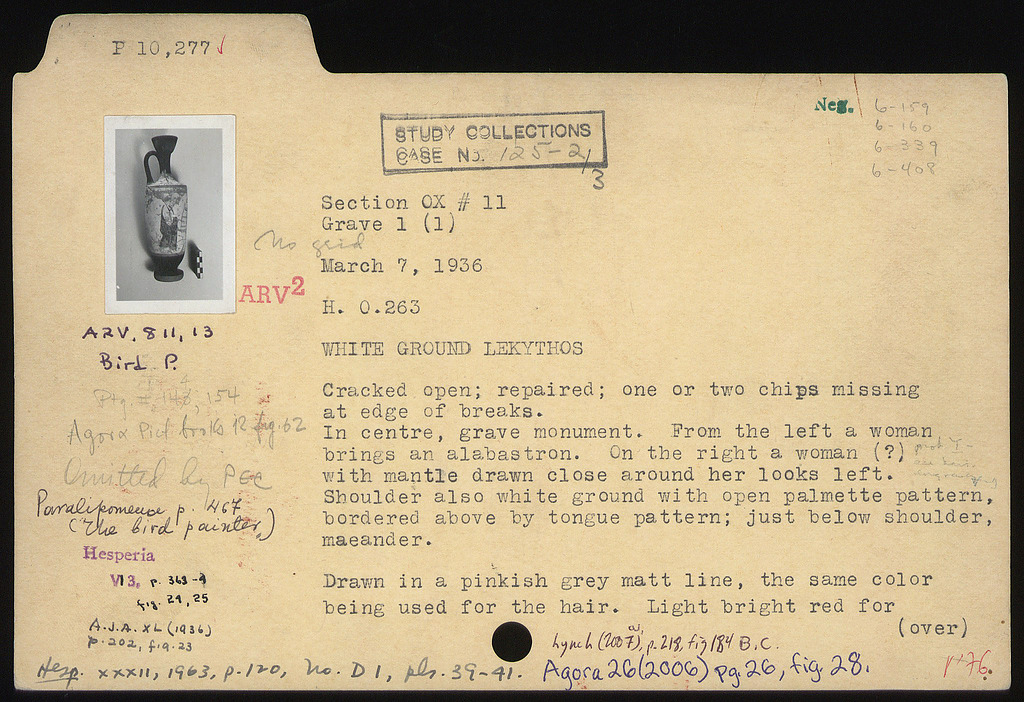 P 10,277 ✓
Neg. 6-159
6-160
6-339
6-408
STUDY COLLECTIONS
CASE NO. 125-2/3
Section OX # 11
Grave 1 (1)
No grid
March 7, 1936
ARV²
H. 0.263
ARV, 811, 13
Bird P.
WHITE GROUND LEKYTHOS
154
Agora Pict books 12 fig. 62
Omitted by PEC
Paralipomena p. 467
(The bird painter)
Hesperia
VI 3, p. 363-4
fig. 24, 25
A.J.A. XL (1936)
p. 202, fig. 23
Cracked open; repaired; one or two chips missing
at edge of breaks.
In centre, grave monument. From the left a woman
brings an alabastron. On the right a woman (?)
with mantle drawn close around her looks left.
Shoulder also white ground with open palmette pattern,
bordered above by tongue pattern; just below shoulder,
maeander.
Drawn in a pinkish grey matt line, the same color
being used for the hair. Light bright red for
(over)
Lynch (2007), p. 218, fig 184 B.C.
Hesp. XXXII, 1963, p. 120, No. D 1, pls. 39-41.
Agora 26 (2006) pg. 26, fig. 28.